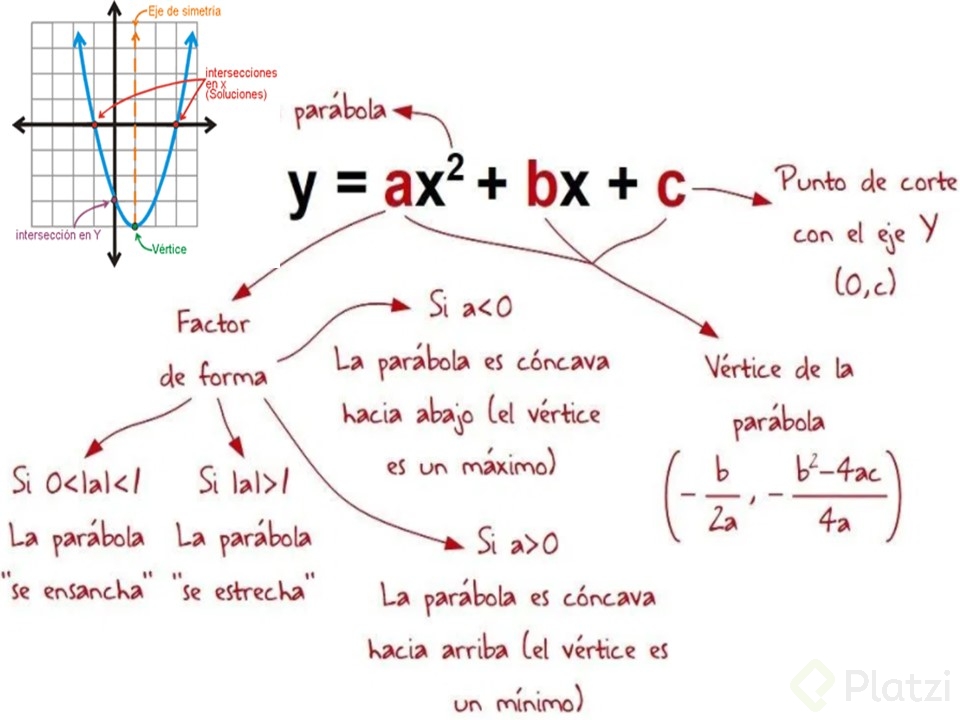 Eje de simetría
intersecciones
en x
(Soluciones)
intersección en Y
Vértice
parábola
y = ax² + bx + c
Punto de corte
con el eje Y
(0,c)
Factor
de forma
Si a<0
La parábola es cóncava
hacia abajo (el vértice
es un máximo)
Vértice de la
parábola
(-b/2a, -b²-4ac/4a)
Si 0<|a|<1
La parábola
"se ensancha"
Si |a|>1
La parábola
"se estrecha"
Si a>0
La parábola es cóncava
hacia arriba (el vértice es
un mínimo)
Platzi